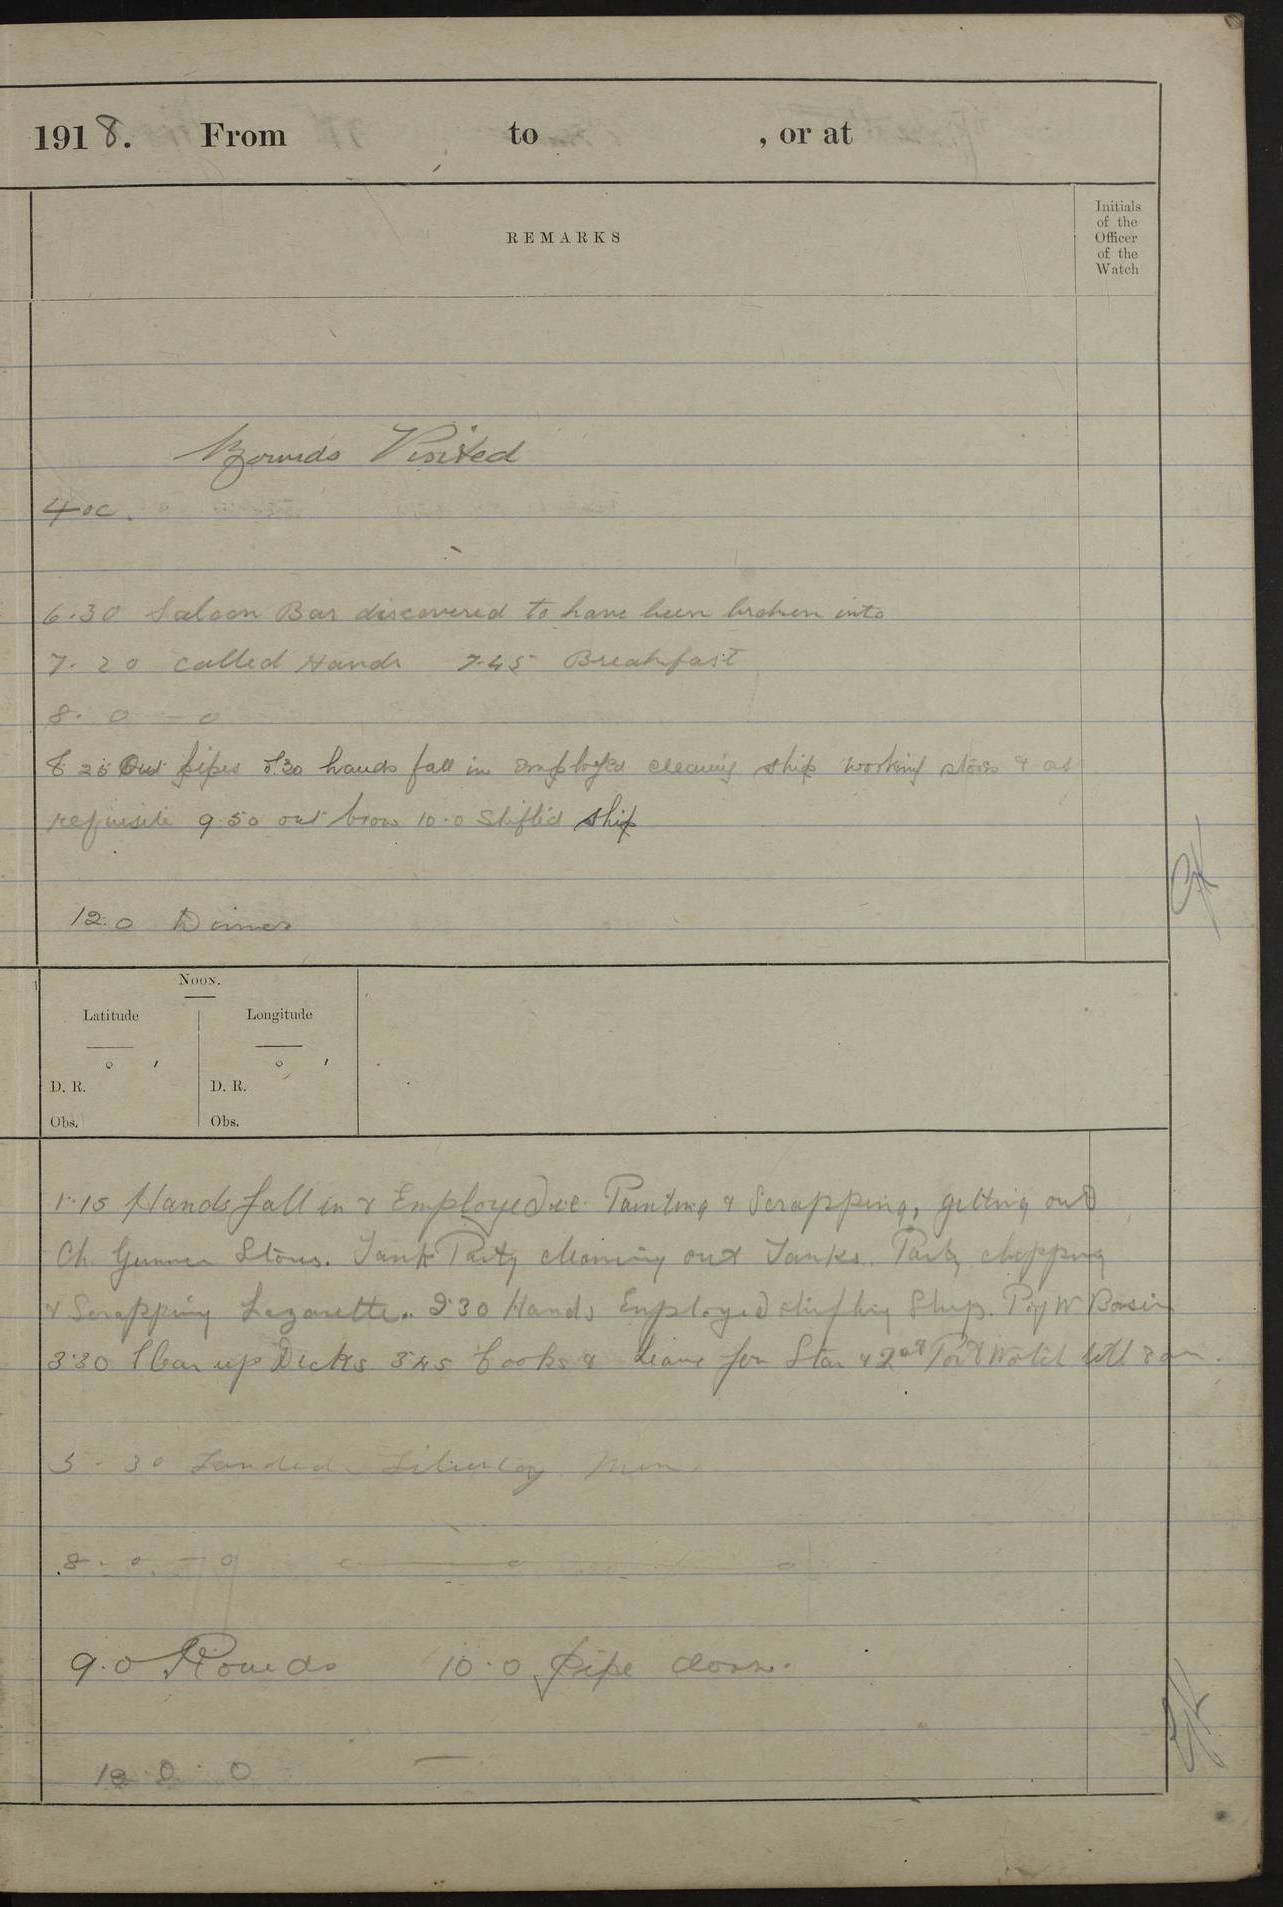 1918. From to , or at
REMARKS
Initials
of the
Officer
of the
Watch
Rounds Visited
4 oc.
6.30 Saloon Bar discovered to have been broken into
7.20 Called Hands 7.45 Breakfast
8. 0 - 0
8 25 Out pipes 8.30 hands fall in Employed cleaning ship working stores & as
requisite 9.50 out brow 10.0 Shifted ship
12.0 Dinner
Noon.
Latitude Longitude
D. R. D. R.
Obs. Obs.
1.15 Hands fall in & Employed Painting & Scrapping, getting out
Ch. Gunner Stores. Tank Party cleaning out Tanks. Party chopping
& Scrapping Lazarette. 2.30 Hands Employed shifting Ship. Basin
3.30 Clear up Decks 3.45 Cooks & Leave for Star & 2nd Port Watch till am.
5.30 Landed Liberty Men.
8. 0 - 0
9.0 Rounds 10.0 pipe down.
12 0 . 0